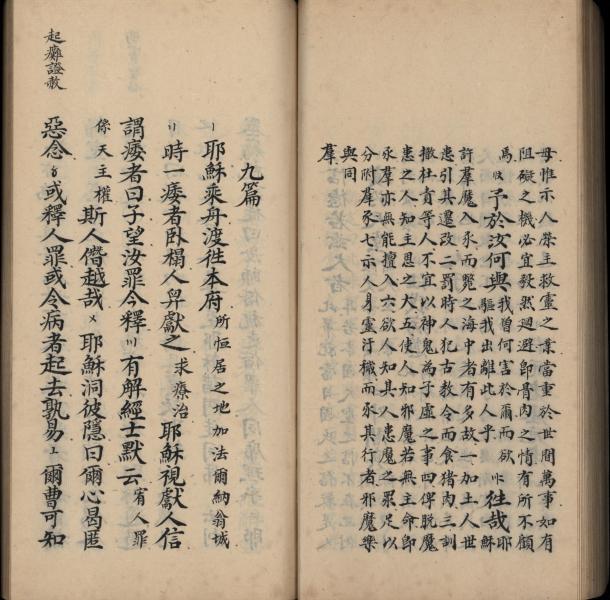 毋惟示人榮主救靈之業當重於世間萬事如有
阻礙之機必宜毅然迴避卽骨肉之情有所不顧
焉 〢予於汝何與 我曾何害於爾而欲驅我出離此人乎 〣徃哉 耶穌
許羣魔入豕而斃之海中者有多故一加土人世
患引其遷改二罰時人犯古教令而食猪肉三訓
撒杜責等人不宜以神鬼為子虛之事四俾脫魔
患之人知主恩之大五使人知邪魔若無主命卽
豕羣亦無能擅入六欲人知其人患魔之眾足以
分附羣豕七示人身靈汙穢而豕其行者邪魔樂
與同
羣
九篇
〡耶穌乘丹渡徃本府 所恒居之地加法爾納翁城
〢時一痿者卧榻人舁獻之 求療治 耶穌視獻人信
謂痿者曰子望汝罪今釋 〣有解經士默云 宥人罪
係天主權 斯人僭越哉 〤耶穌洞彼隱曰爾心曷匿
惡念 〥或釋人罪或令病者起去孰易 〦爾曹可知
起癱證赦